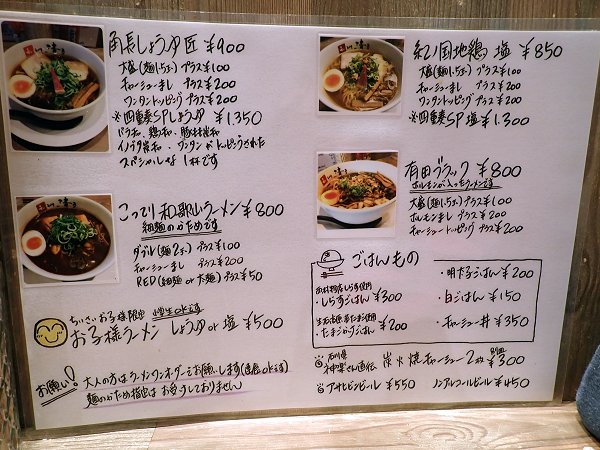 角長しょうゆ匠 ¥900
大盛(麺1.5玉)プラス¥100
チャーシューまし プラス¥200
ワンタントッピング プラス¥200
※四重奏SPしょうゆ ¥1,350
バラ和、鶏和、豚和
イノブタ和、ワンタンがトッピングされた
スペシャルな1杯です
こってり和歌山ラーメン¥800
細麺のかためです
ダブル(麺2玉)プラス¥100
チャーシューまし プラス¥200
RED(細麺or太麺)プラス¥50
ちいさいお子様限定
お子様ラーメン しょうゆor塩 ¥500
お願い!
大人の方はラーメンワンオーダーをお願いします(追加ok)
麺のかため指定はお受けしておりません
紀ノ国地鶏 塩 ¥850
大盛(麺1.5玉)プラス¥100
チャーシューまし プラス¥200
ワンタントッピング プラス¥200
※四重奏SP塩 ¥1,300
有田ブラック ¥800
ホルモンが入ったラーメンです
大盛(麺1.5玉)プラス¥100
ホルモンまし プラス¥200
チャーシュートッピング プラス¥200
ごはんもの
しらす使用
・しらすごはん ¥300
たまご使用
・たまごかけごはん ¥200
・明太子ごはん ¥200
・白ごはん ¥150
・チャーシュー丼 ¥350
石川県
神楽さん直伝 炭火焼チャーシュー2枚 ¥300
アサヒビンビール ¥550 ノンアルコールビール ¥450